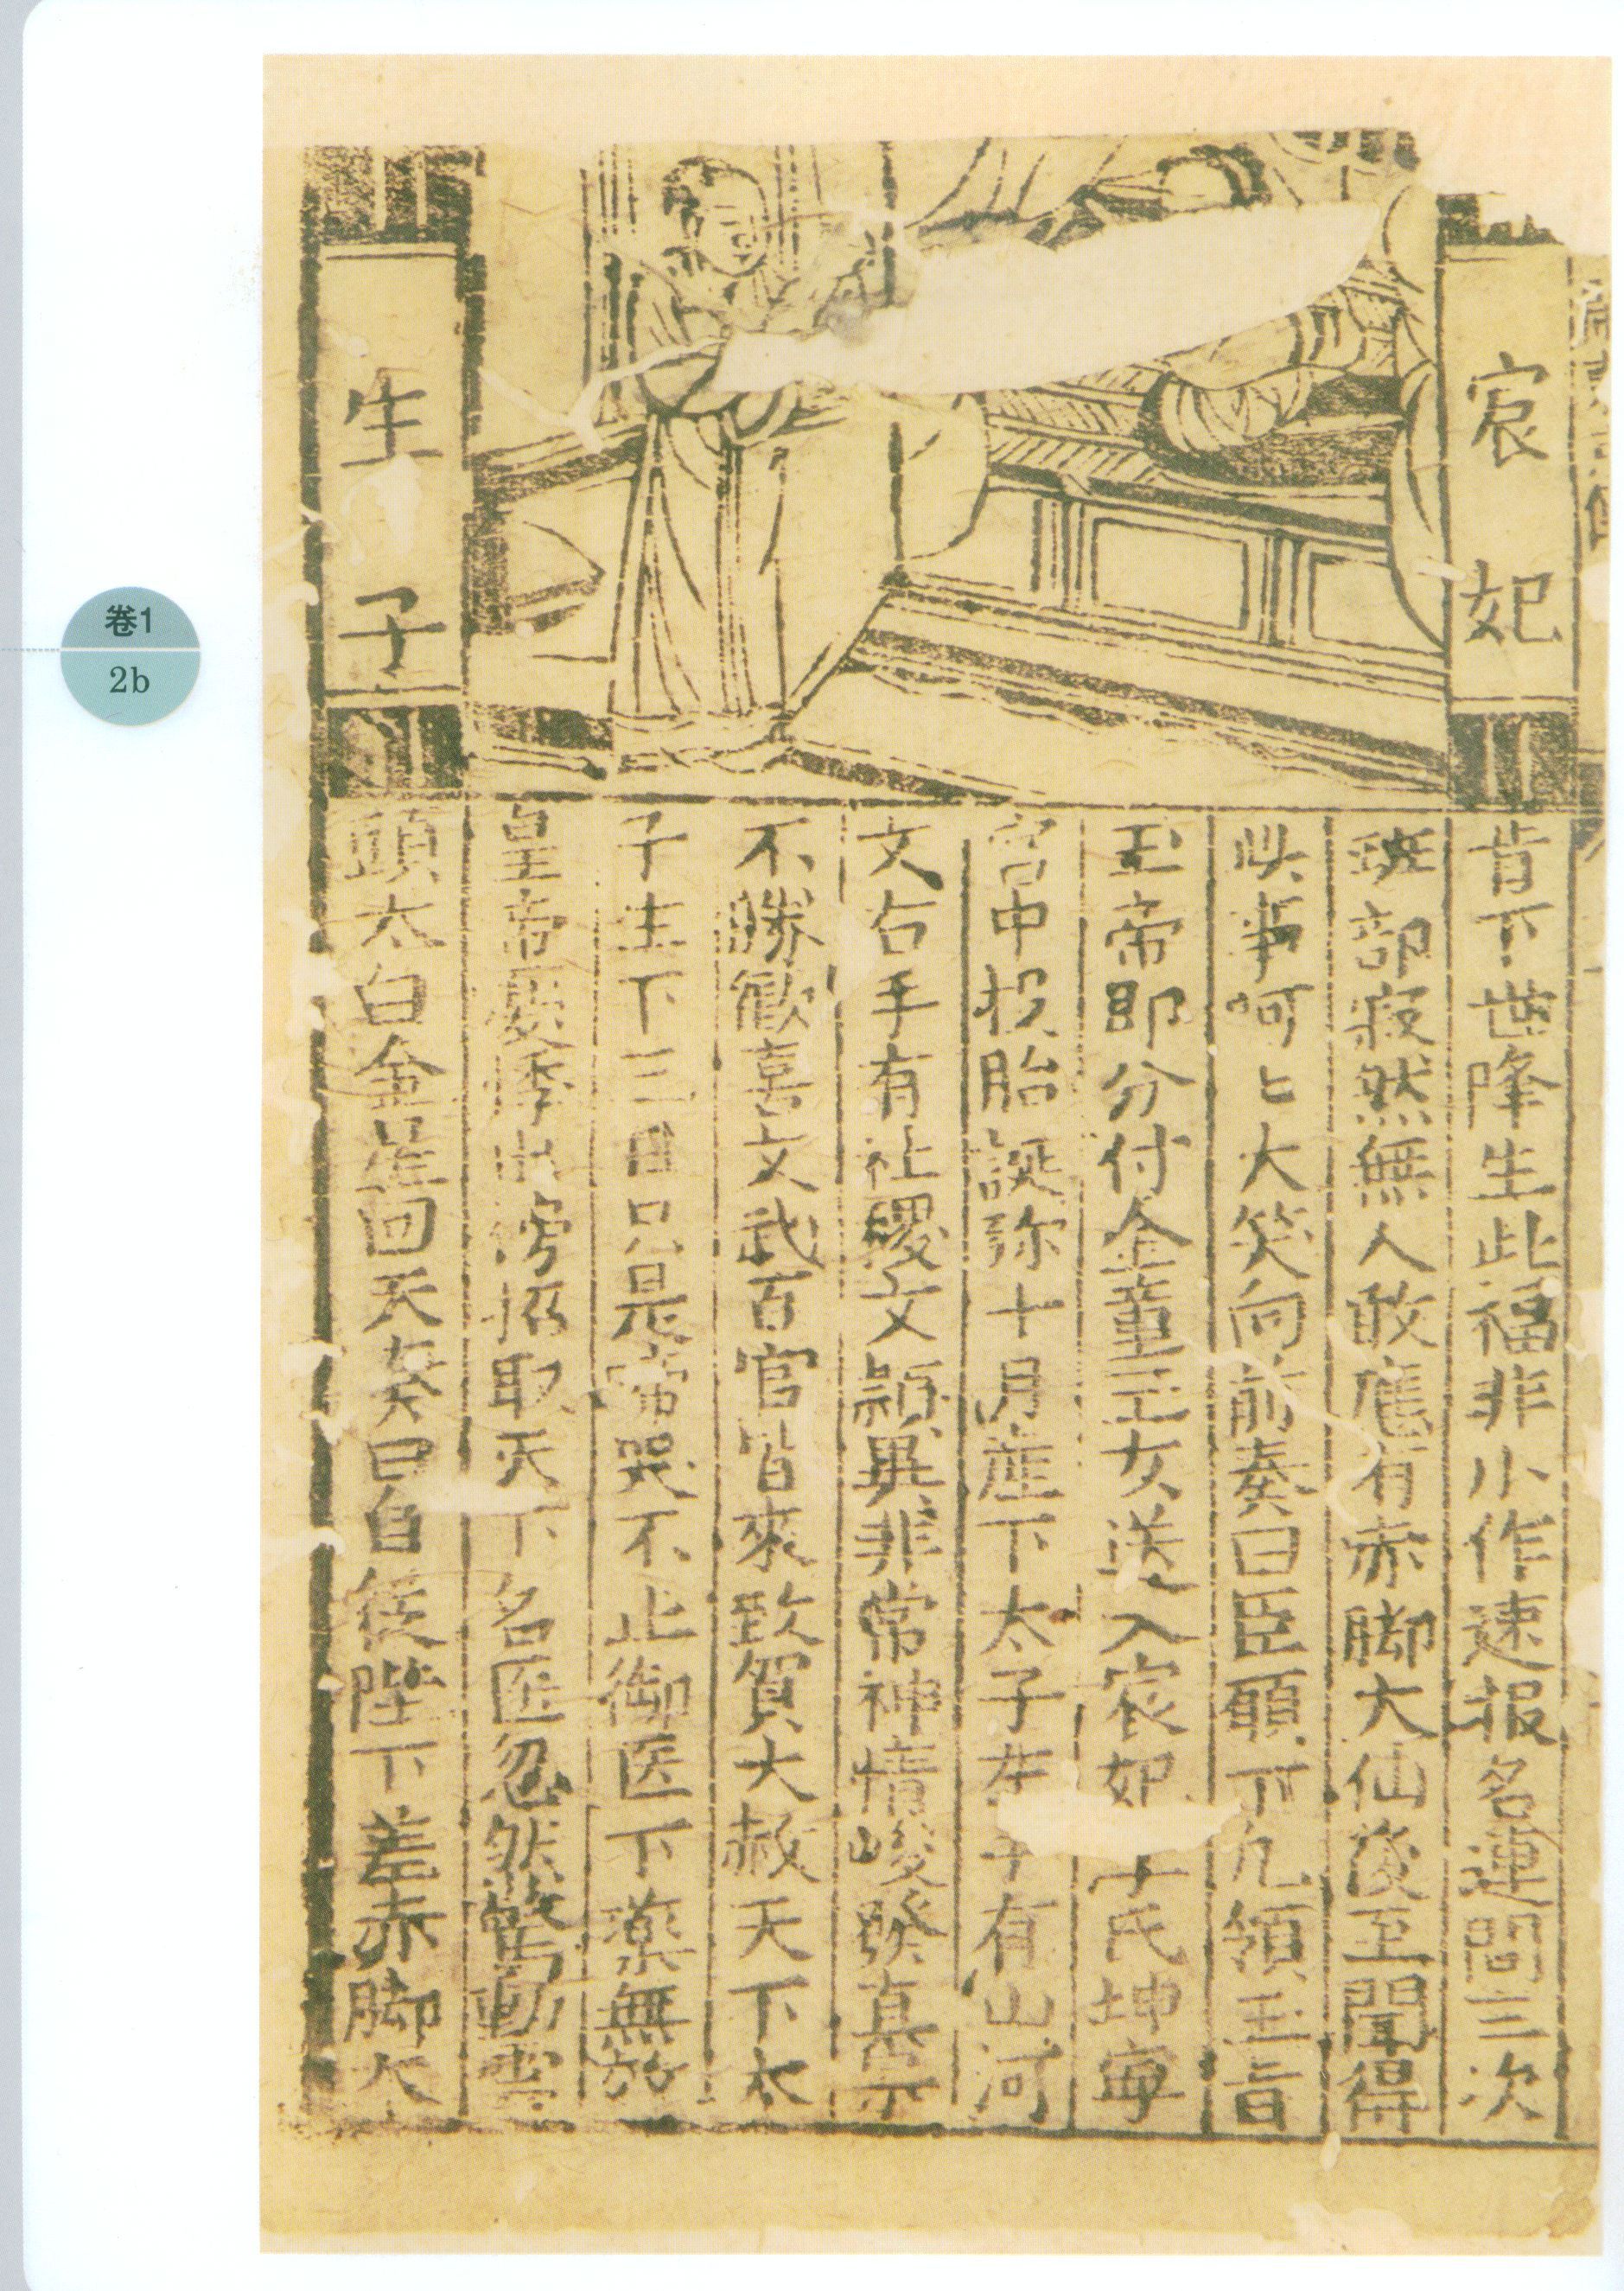 卷1
2b
宸妃
生子
肯下世降生此福非小作速报名連問三次
班部寂然無人敢應有赤脚大仙後至聞得
此事呵匕大笑向前奏曰臣願下凡領玉旨
玉帝即分付金童玉女送入宸妃 氏坤寧
宮中投胎誕弥十月產下太子左手有山河
文右手有社稷文頴異非常神情峻發真宗
不勝歡喜文武百官皆來致賀大赦天下太
子生下三日只是啼哭不止御医下藥無功
皇帝 榜招取天下名医忽然驚動雲
頭太白金星回天奏曰自從陛下差赤脚大